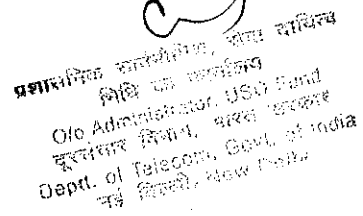 प्रशासनिक कार्यालय, सेवा दायित्व
निधि का कार्यालय
O/o Administrator, USO Fund
दूरसंचार विभाग, भारत सरकार
Deptt. of Telecom, Govt. of India
नई दिल्ली, New Delhi